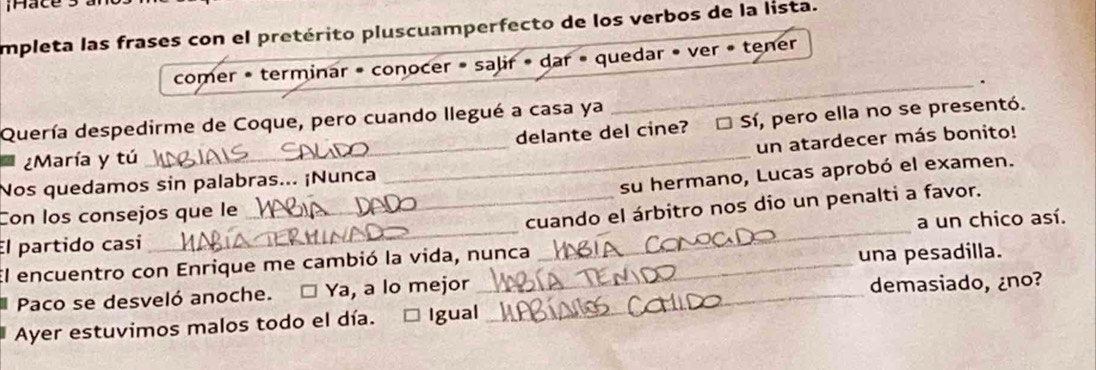 mpleta las frases con el pretérito pluscuamperfecto de los verbos de la lista.
comer • terminar • conocer • salir • dar • quedar • ver • tener
Quería despedirme de Coque, pero cuando llegué a casa ya ________.
¿María y tú HABÍAIS SALIDO delante del cine? □ Sí, pero ella no se presentó.
Nos quedamos sin palabras... ¡Nunca ________ un atardecer más bonito!
Con los consejos que le HABÍA DADO su hermano, Lucas aprobó el examen.
El partido casi HABÍA TERMINADO cuando el árbitro nos dio un penalti a favor.
El encuentro con Enrique me cambió la vida, nunca HABÍA CONOCIDO a un chico así.
Paco se desveló anoche. □ Ya, a lo mejor HABÍA TENIDO una pesadilla.
Ayer estuvimos malos todo el día. □ Igual HABÍAMOS COMIDO demasiado, ¿no?